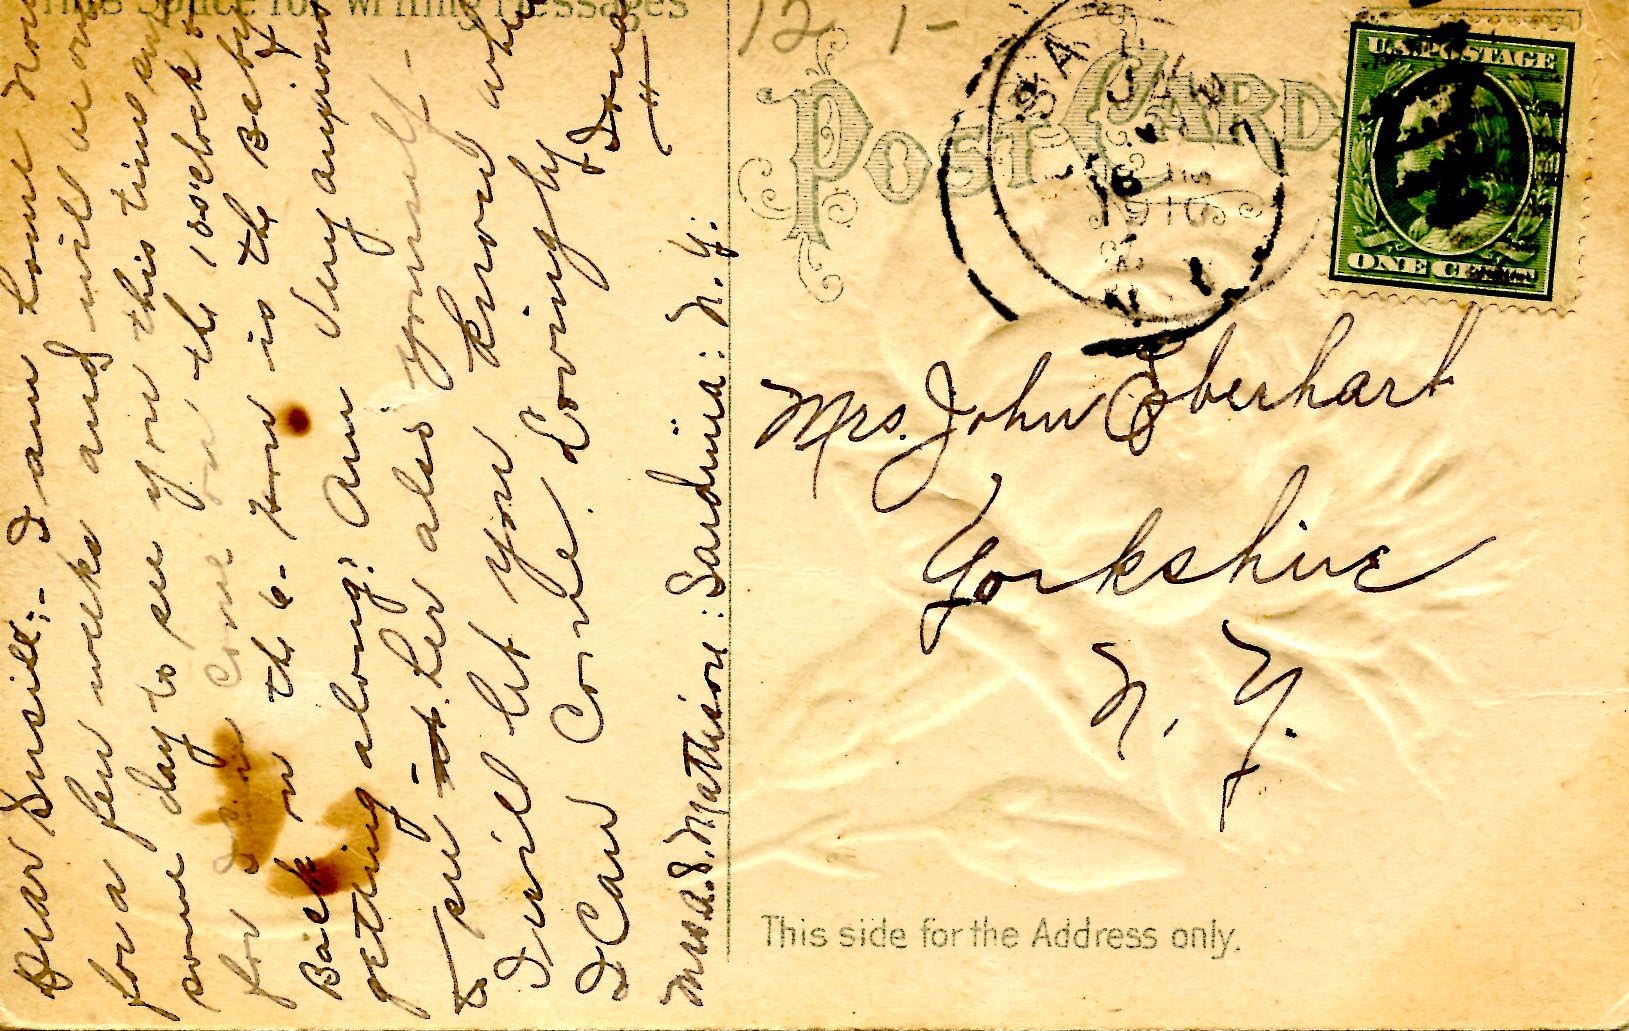 This Space for Writing Messages
Dear Lucile;- I am home now
for a few weeks and will come
some day to see you this time sure
for I can come on the 10 o'clock &
Back on the 6- How is the Baby
getting along? Am very anxious
to see it her also yourself-
I will let you know when
I Can Come. Lovingly
Mrs. A. J. Mathison: Sardinia: N.Y.
12 1-
POST CARD
1910
U.S. POSTAGE
ONE CENT
Mrs. John Eberhart
Yorkshire
N. Y.
This side for the Address only.